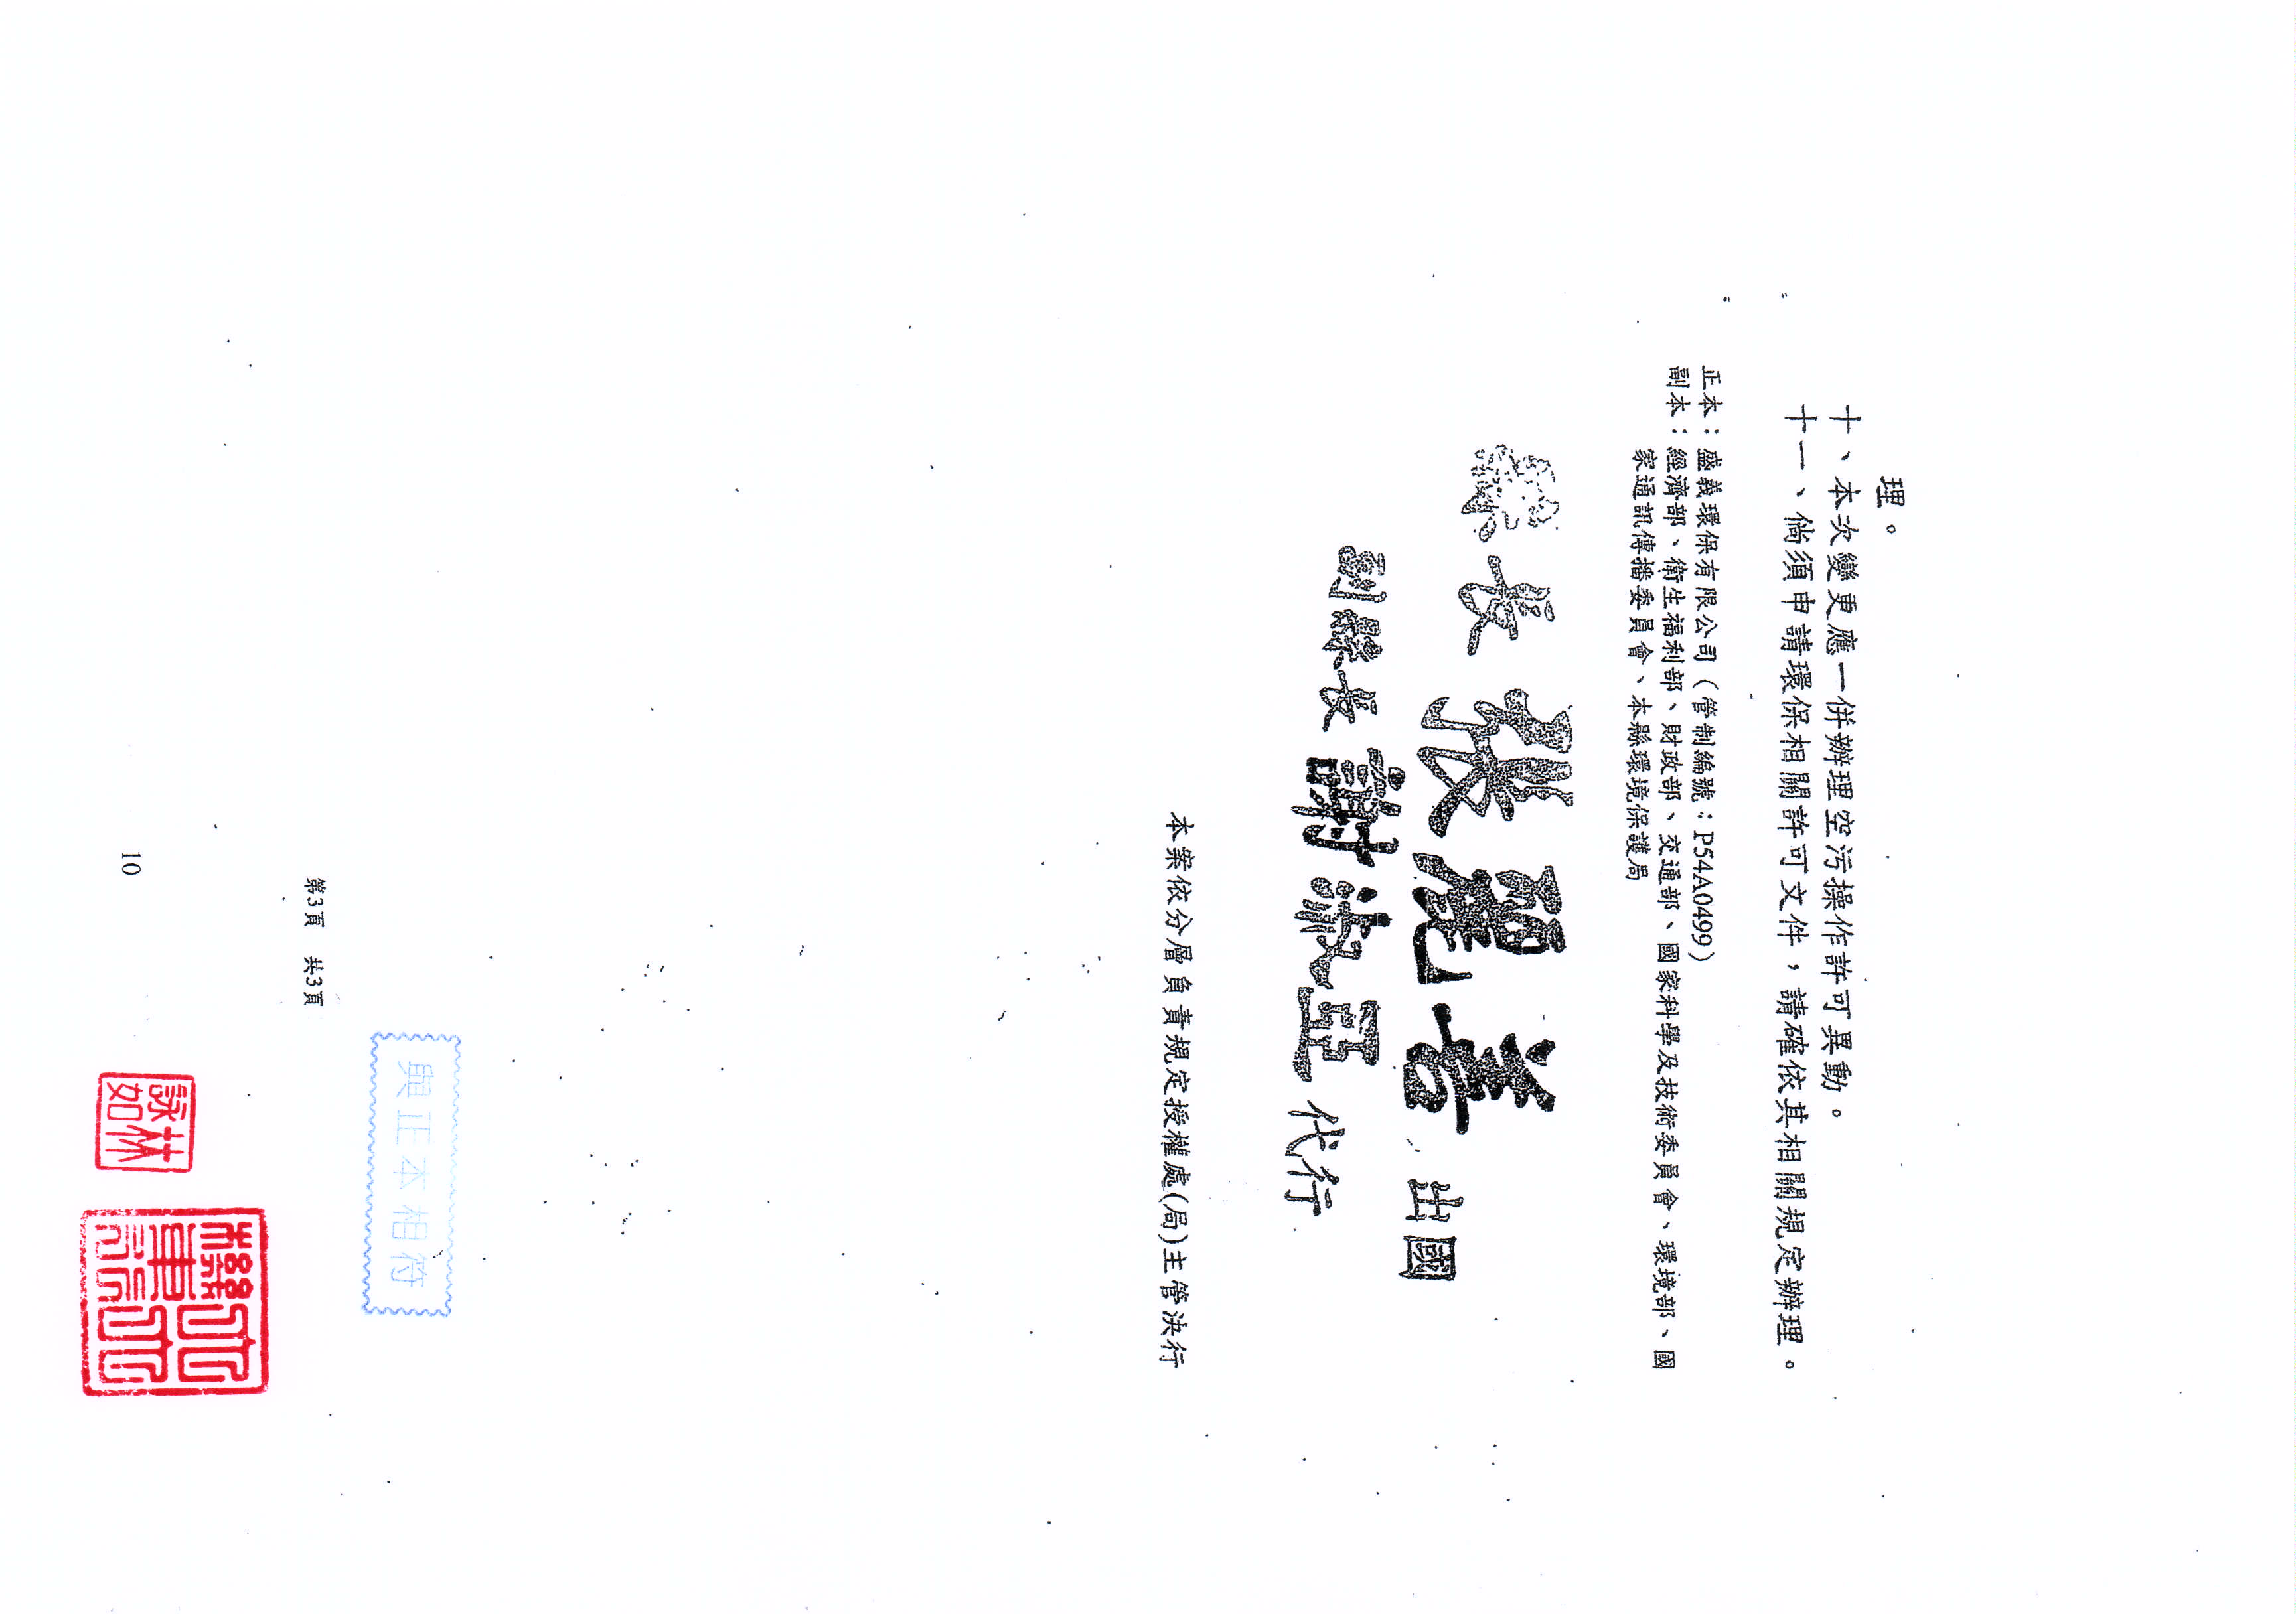 理。
十、本次變更應一併辦理空污操作許可異動。
十一、倘須申請環保相關許可文件，請確依其相關規定辦理。
正本：盛義環保有限公司（管制編號：P54A0499）
副本：經濟部、衛生福利部、財政部、交通部、國家科學及技術委員會、環境部、國
家通訊傳播委員會、本縣環境保護局
縣長 張麗善 出國
副縣長 謝淑亞 代行
本案依分層負責規定授權處(局)主管決行
第3頁 共3頁
與正本相符
林詠如
10